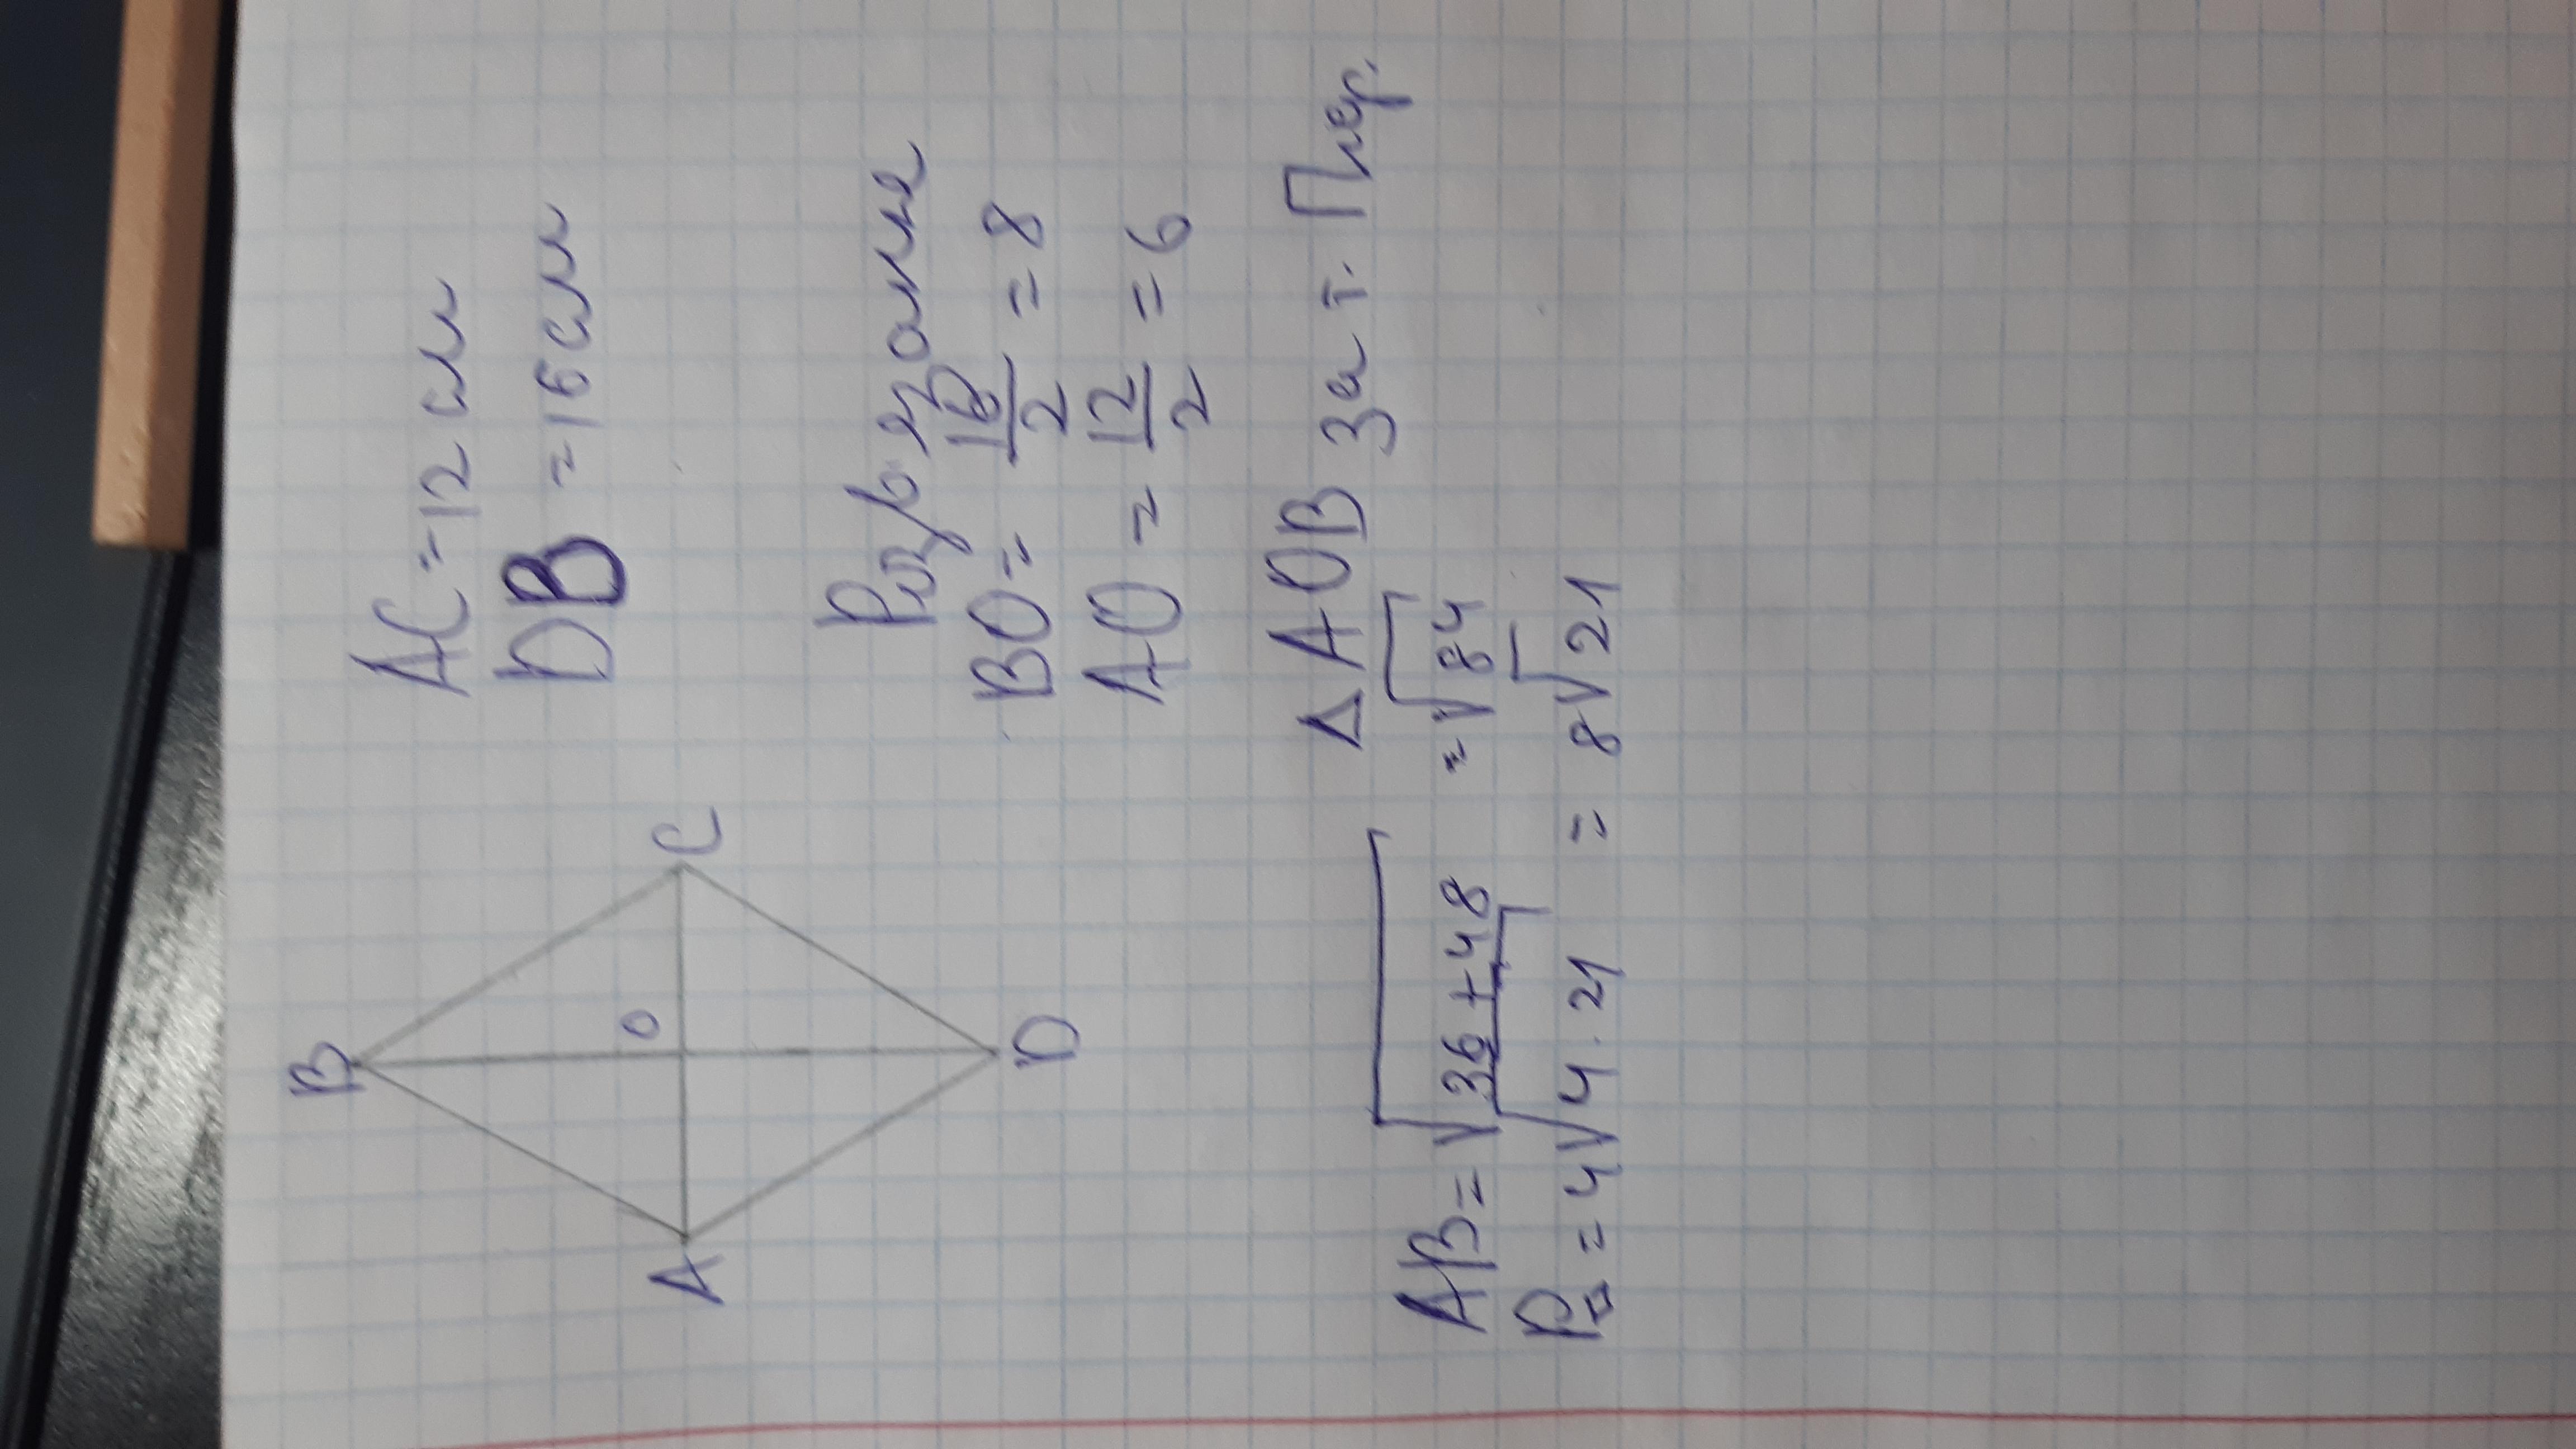 B
O
A
C
D
AC = 12 см
DB = 16 см
Розвязання
BO = 16/2 = 8
AO = 12/2 = 6
△AOB за т. Піф.
AB = √36+48 = √84
P = 4√4·21 = 8√21